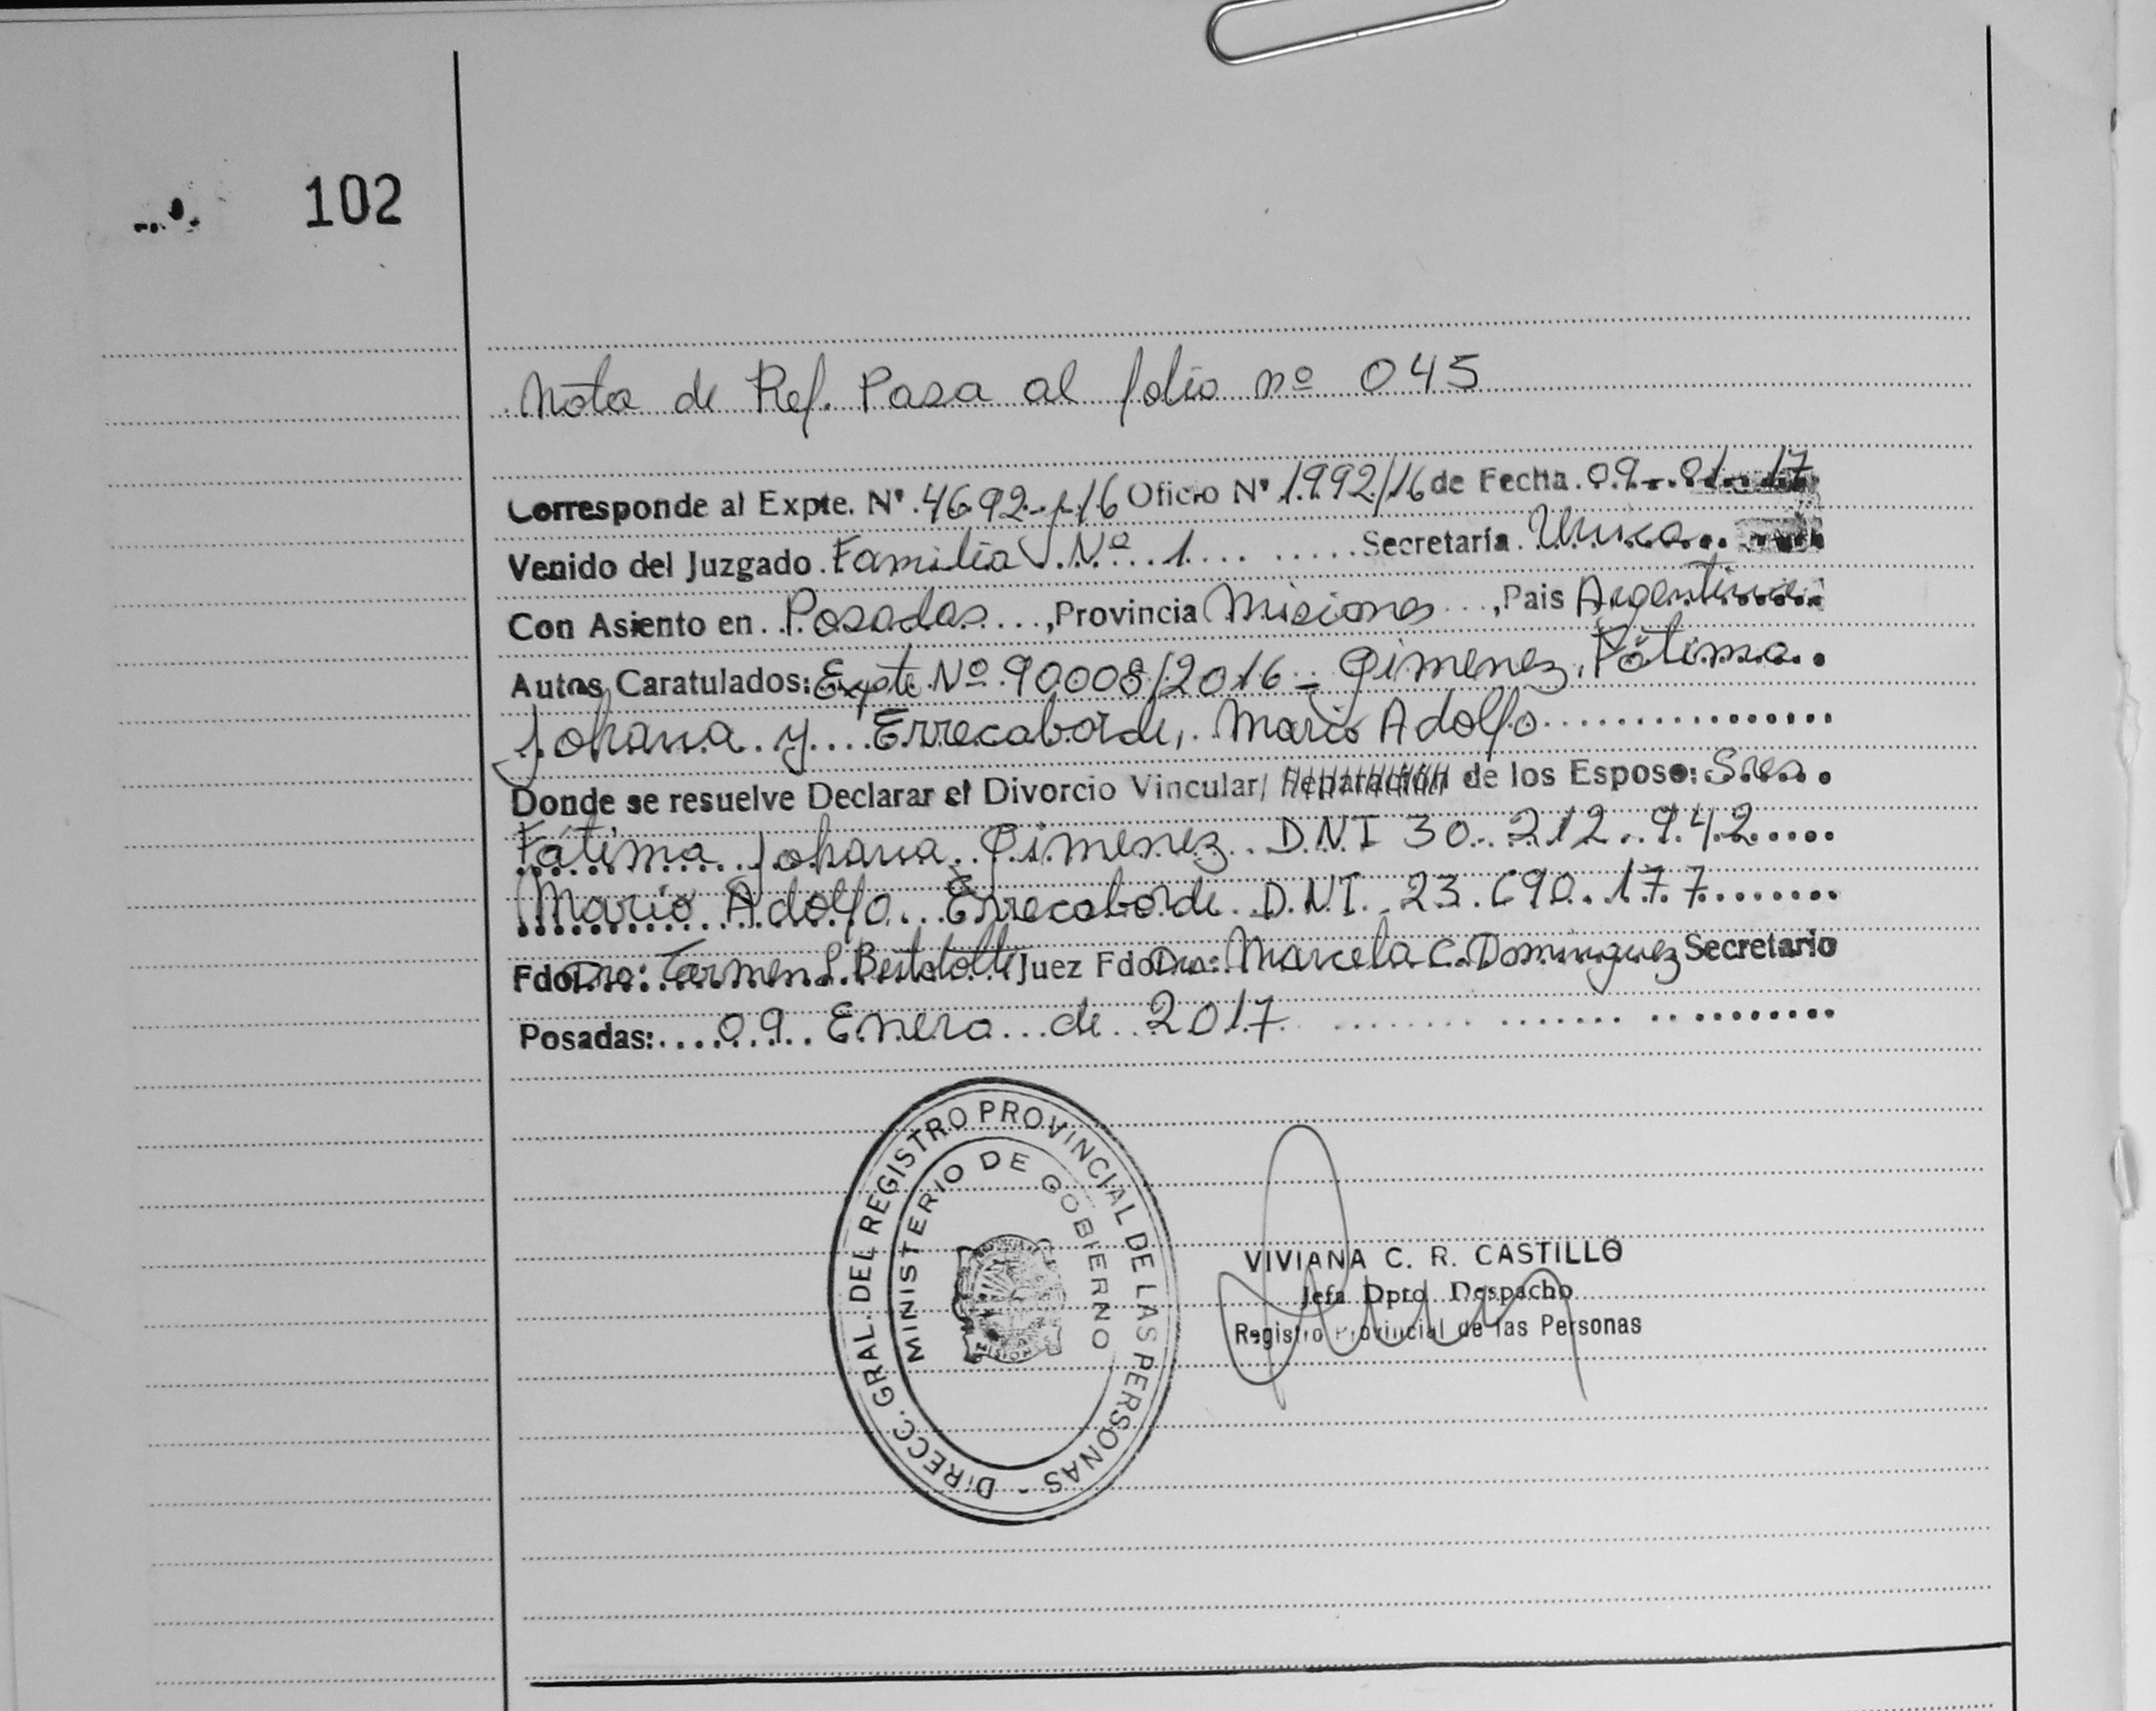 102
Nota de Ref. Pasa al folio nº 045
Corresponde al Expte. Nº 4692-J-16 Oficio Nº 1992/16 de Fecha 09-01-17
Venido del Juzgado Familia Nº 1 Secretaría Unica
Con Asiento en Posadas, Provincia Misiones, Pais Argentina
Autos Caratulados: Expte Nº 90008/2016 - Gimenez, Fátima
Johana y Errecaborde, Mario Adolfo
Donde se resuelve Declarar el Divorcio Vincular/ Separación de los Esposo: Sres.
Fátima Johana Gimenez D.N.I 30.212.942
Mario Adolfo Errecaborde D.N.I. 23.690.177
Fdo Dra: Carmen Juez Fdo Dra: Marcela C. Dominguez Secretario
Posadas: 09 Enero de 2017
DIRECC. GRAL. DEL REGISTRO PROVINCIAL DE LAS PERSONAS -
MINISTERIO DE GOBIERNO
VIVIANA C. R. CASTILLO
Jefa Dpto Despacho
Registro Provincial de las Personas